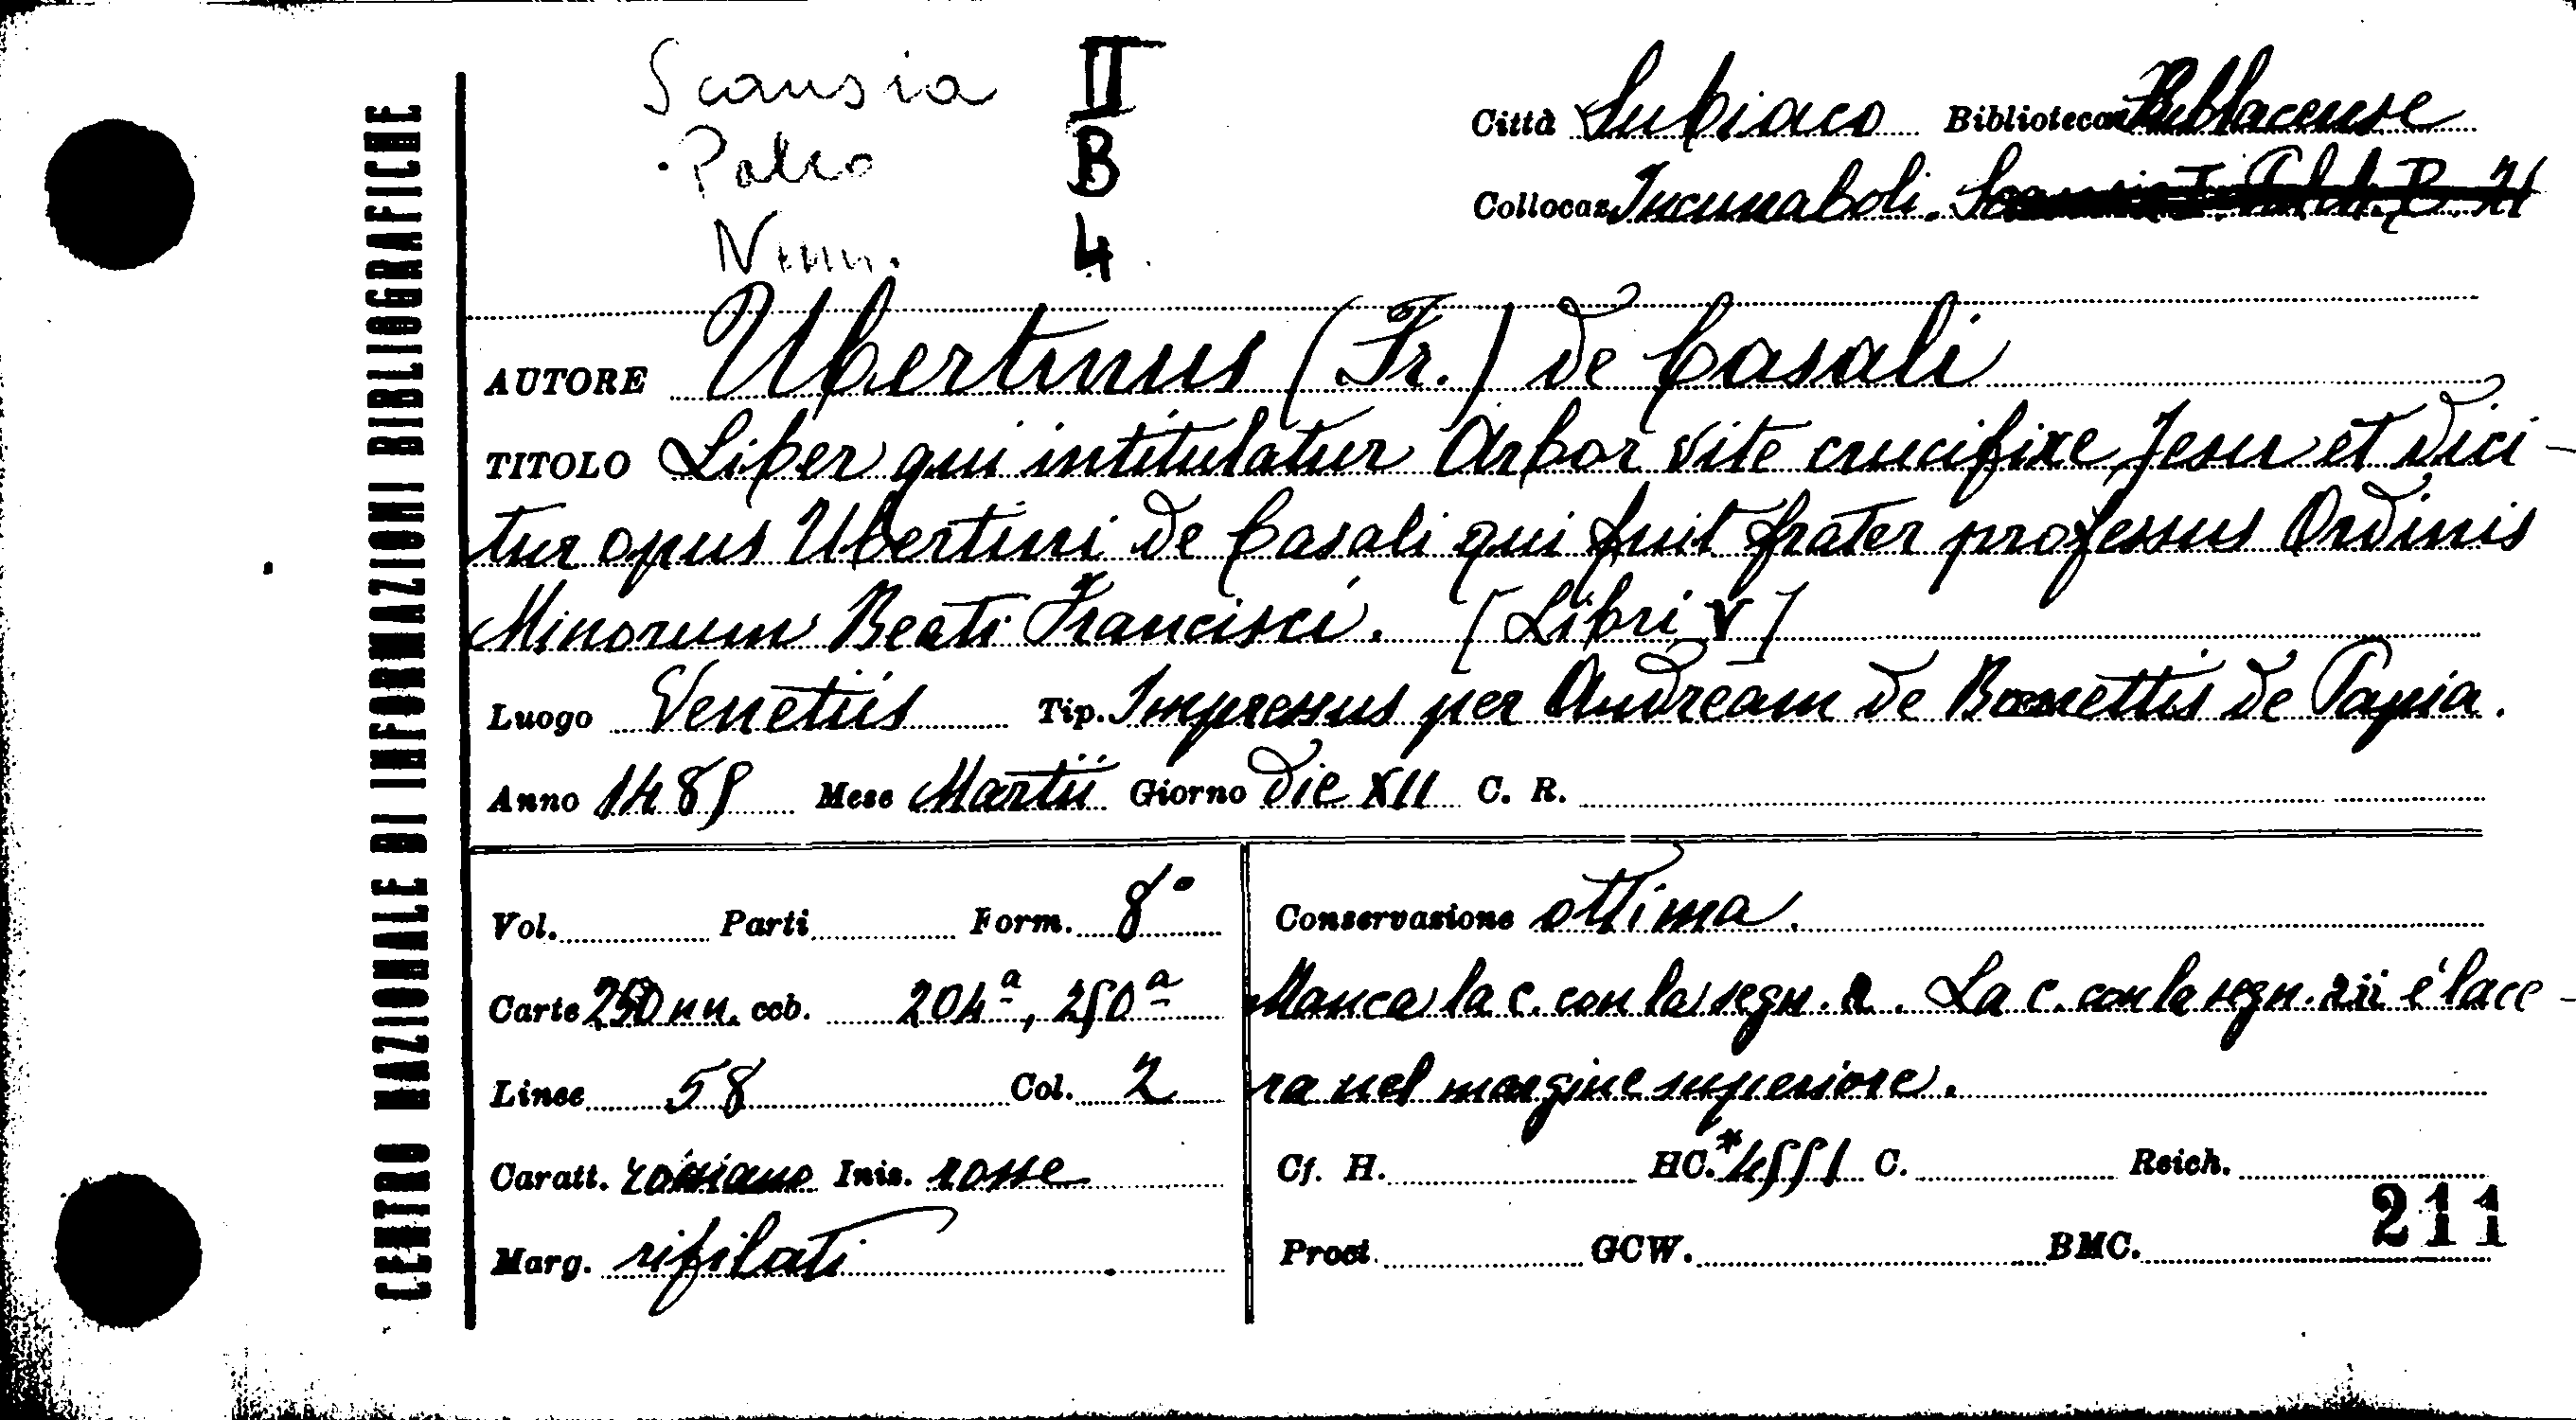 CENTRO NAZIONALE DI INFORMAZIONI BIBLIOGRAFICHE
Scansia II
Palco B
Num. 4
Città Subiaco Biblioteca Sublacense
Collocaz. Incunaboli.
AUTORE Ubertinus (Fr.) de Casali
TITOLO Liber qui intitulatur Arbor vite crucifixe Jesu et dici-
tur opus Ubertini de Casali qui fuit frater professus Ordinis
Minorum Beati Francisci. [Libri V]
Luogo Venetiis Tip. Impressus per Andream de Bonettis de Papia.
Anno 1485 Mese Martii Giorno die XII C. R.
Vol. Parti Form. 8°
Carte 250 nn. ccb. 204ª, 250ª
Linee 58 Col. 2
Caratt. romano Iniz. rosse
Marg. rifilati
Conservazione ottima.
Manca la c. con la segn. . La c. con la segn. è lace-
ra nel margine superiore.
Cf. H. HC.*4551 C. Reich.
Proct. GCW. BMC.
211